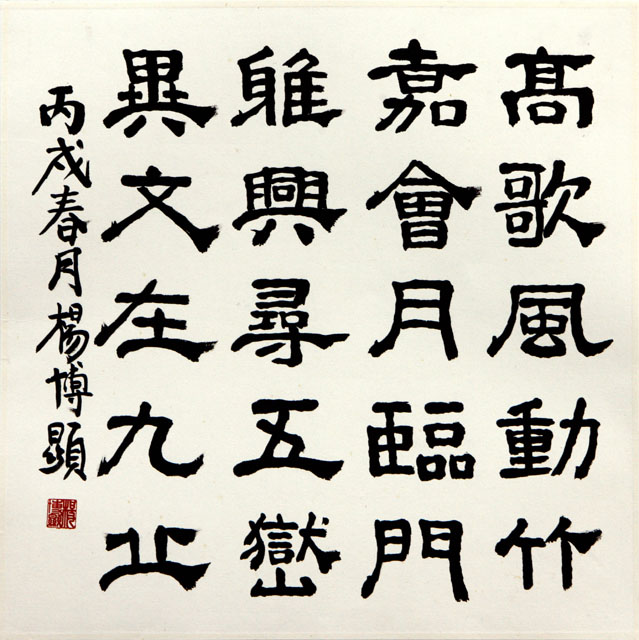 髙歌風動竹
嘉會月臨門
雅興尋五嶽
異文在九丘
丙戌春月楊博顯